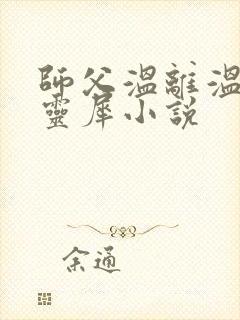 師父溫離溫
靈犀小說
余通